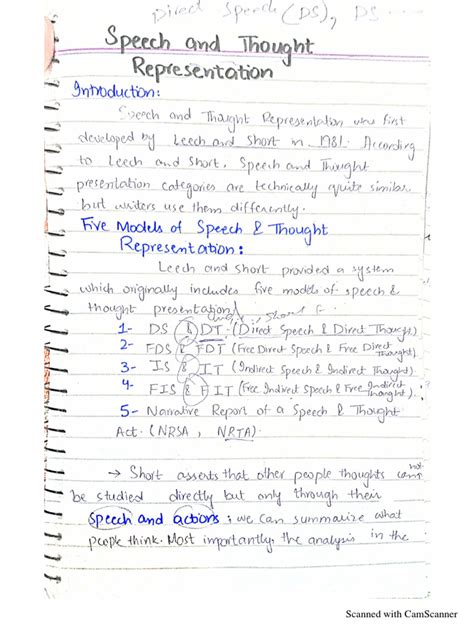 Direct Speech (DS), DS ....
Speech and Thought
Representation
Introduction:
Speech and Thought Representation was first
developed by Leech and Short in 1981. According
to Leech and Short, Speech and Thought
presentation categories are technically quite similar
but writers use them differently.
Five Models of Speech & Thought
Representation:
Leech and Short provided a system
which originally includes five models of speech &
thought presentation
1- DS & DT: (Direct Speech & Direct Though)
2- FDS & FDT (Free Direct Speech & Free Direct Thought)
3- IS & IT (Indirect Speech & Indirect Thought)
4- FIS & FIT (Free Indirect Speech & Free Indirect Thought)
5- Narrative Report of a Speech & Thought
Act. (NRSA, NRTA).
→ Short asserts that other people thoughts can not
be studied directly but only through their
speech and actions; we can summarize what
people think. Most importantly, the analysis in the
Scanned with CamScanner